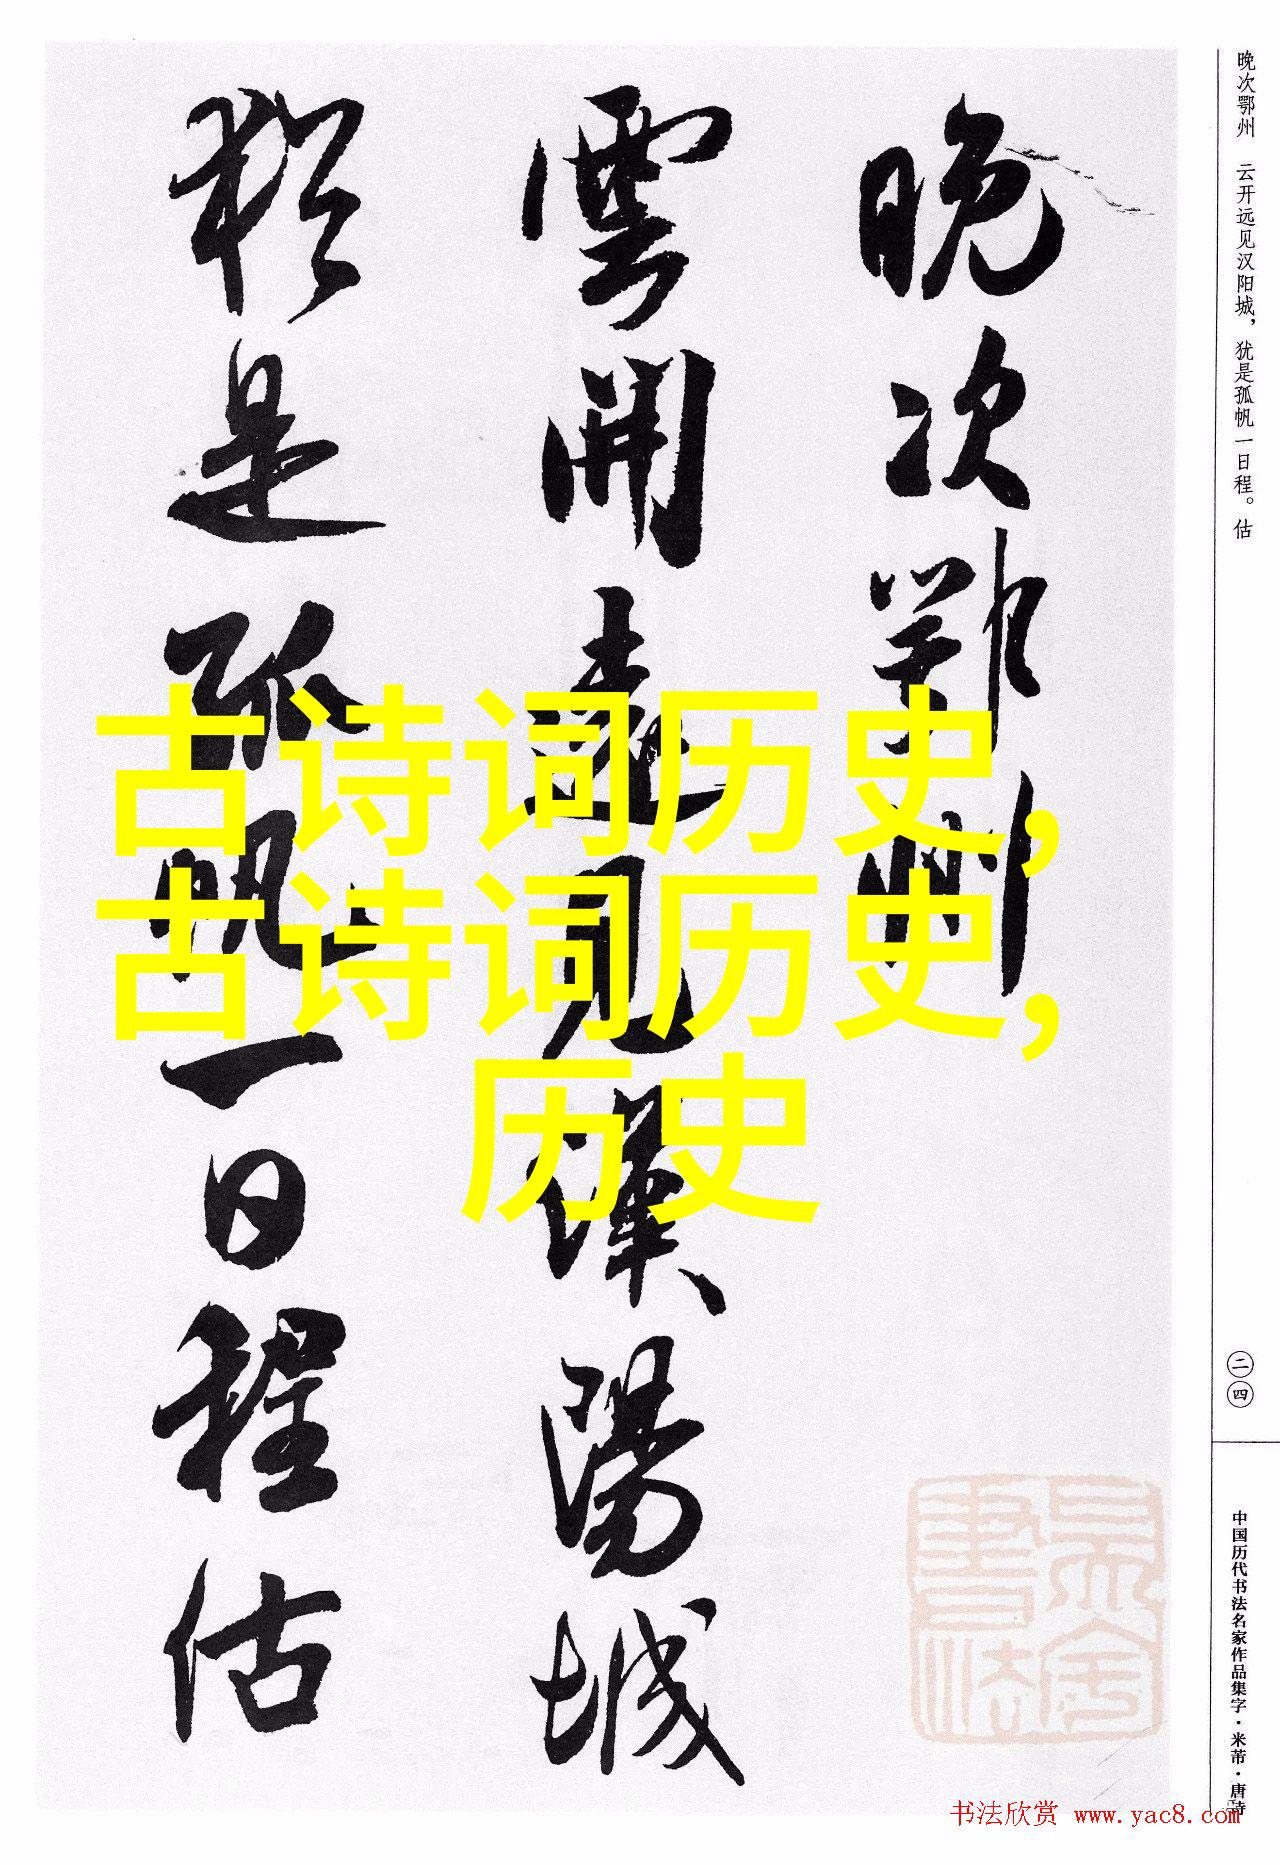 晚次鄂州
雲開遠見漢陽城
猶是孤帆一日程估
古诗词历史，
古诗词历史，
历史
晚次鄂州 云开远见汉阳城，犹是孤帆一日程。估
二四
中国历代书法名家作品集字·米芾·唐诗
书法欣赏 www.yac8.com